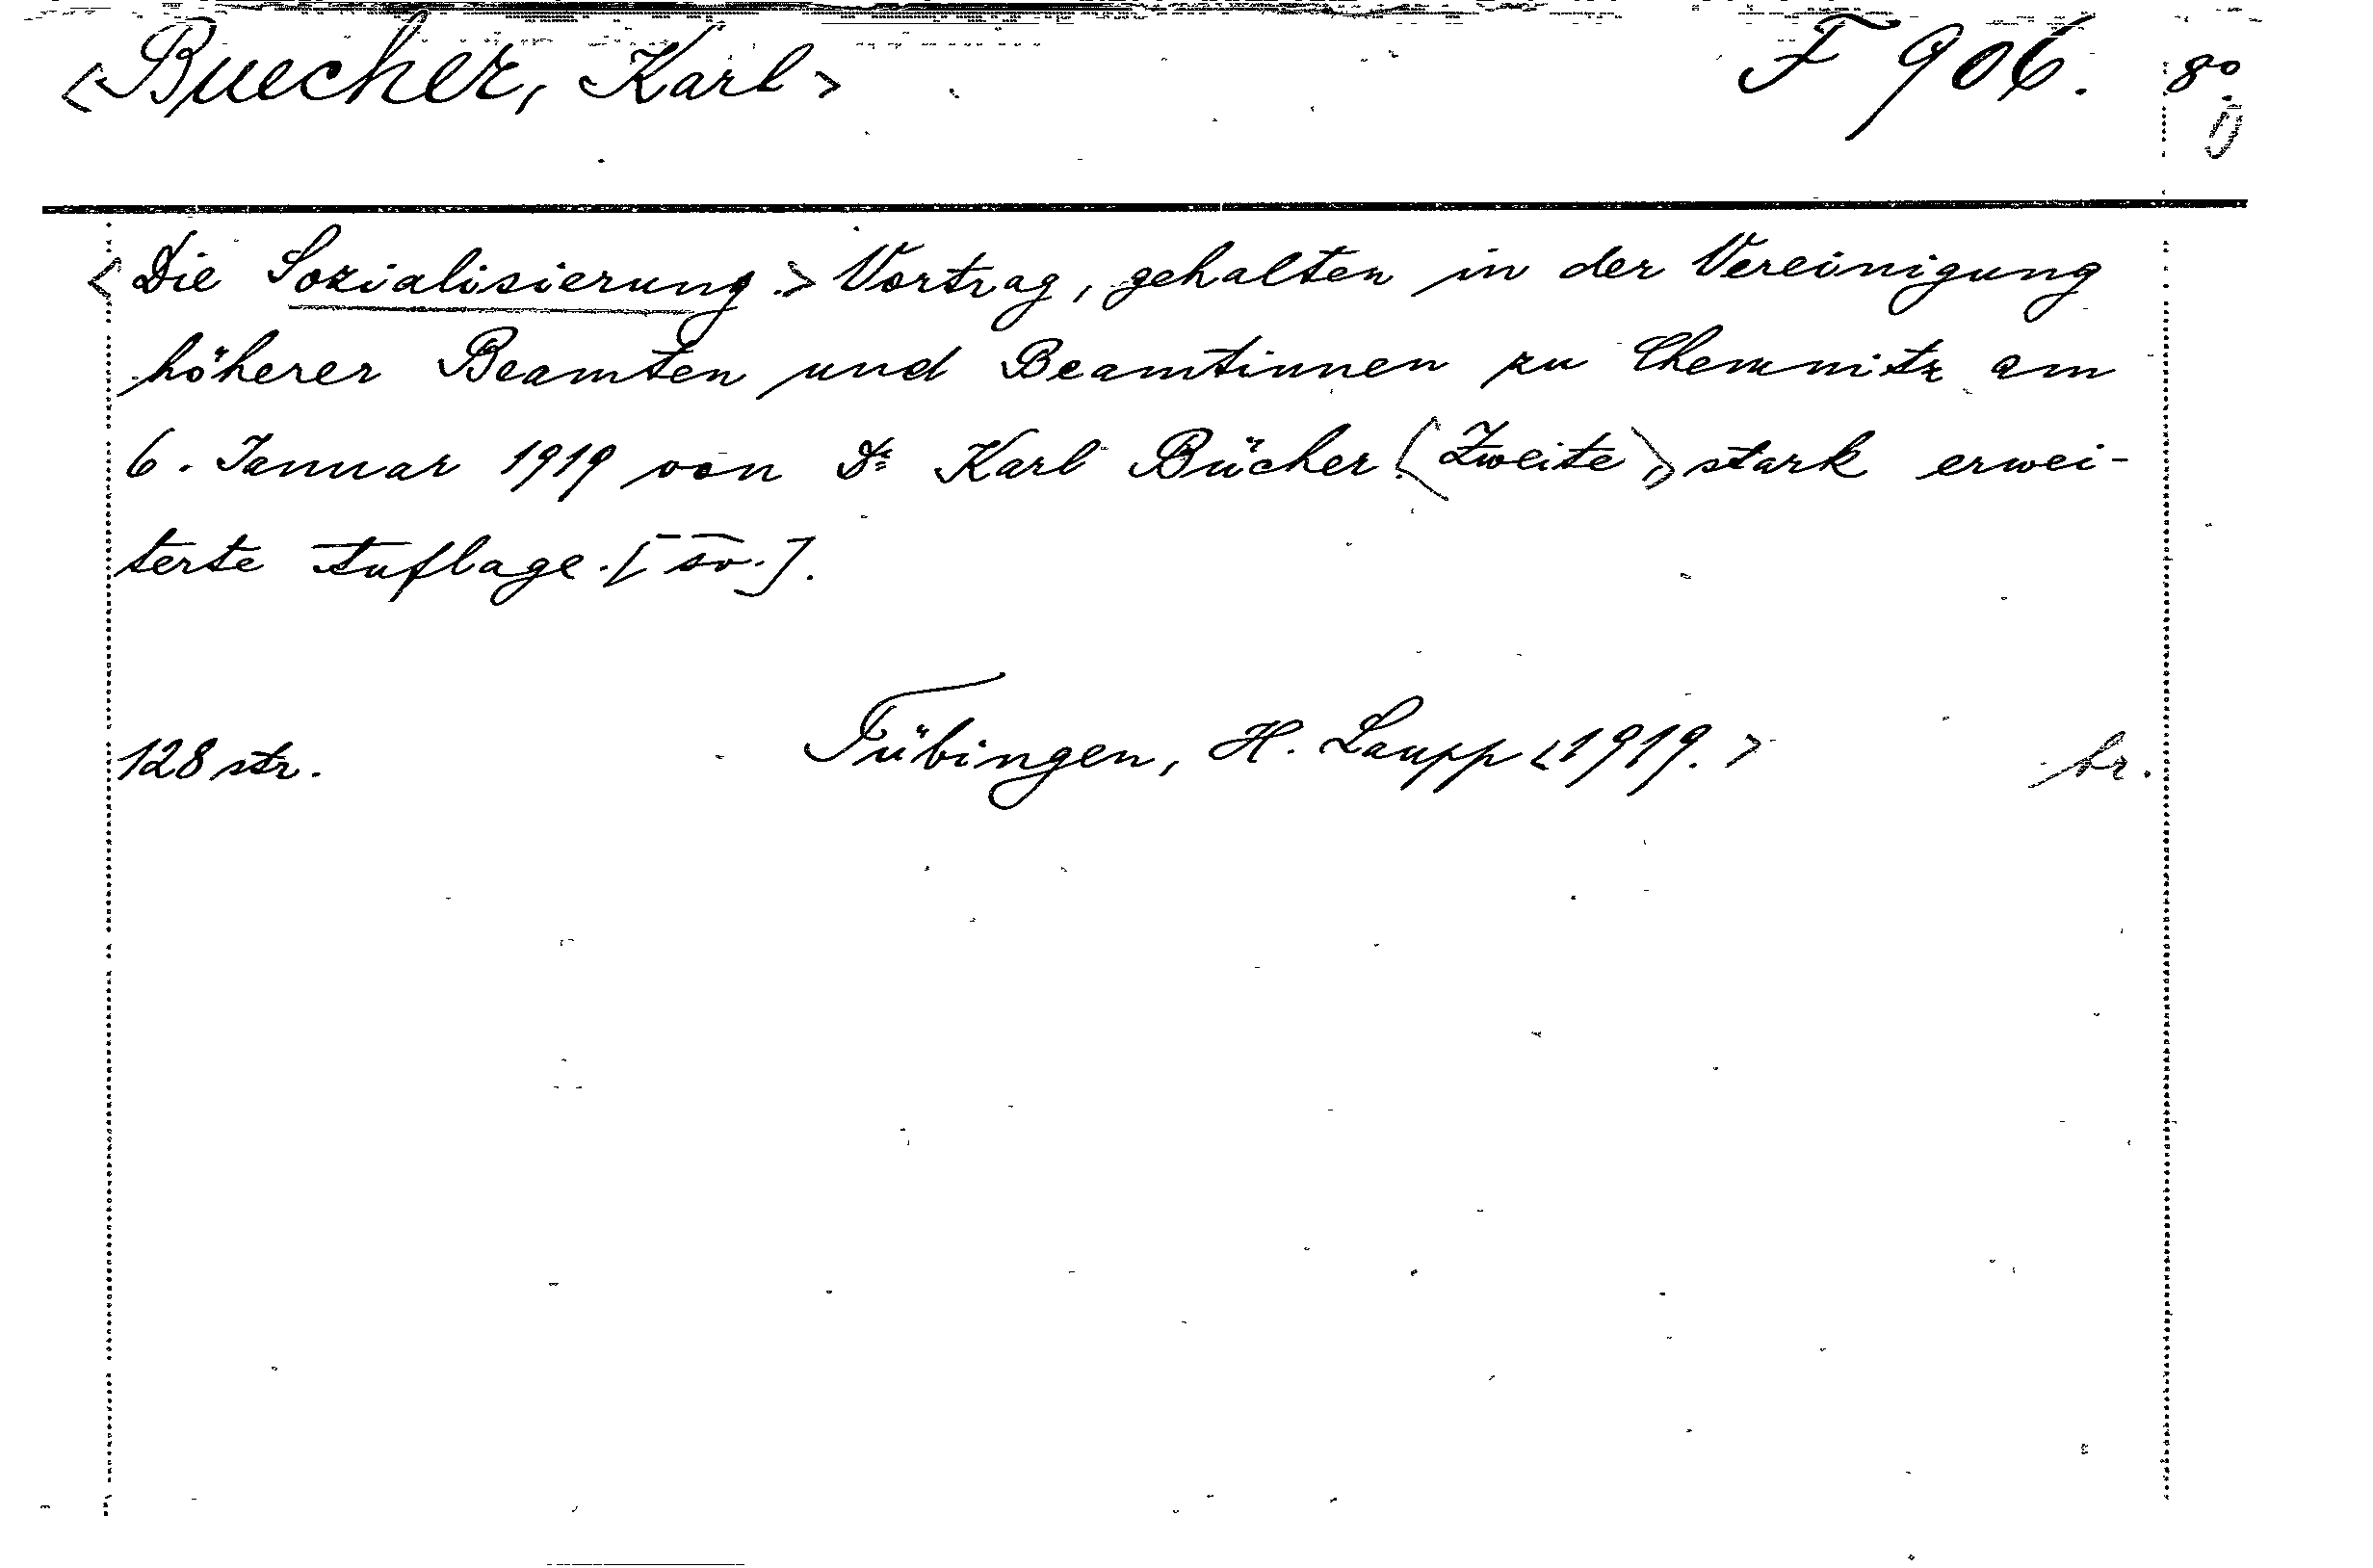 <Buecher, Karl> F 906. 8º
<Die Sozialisierung.> Vortrag, gehalten in der Vereinigung
höherer Beamten und Beamtinnen zu Chemnitz am
6. Januar 1919 von Dr Karl Bücher. <Zweite>, stark erwei-
terte Auflage. [so.].
128 str. Tübingen, H. Laupp <1919.> br.